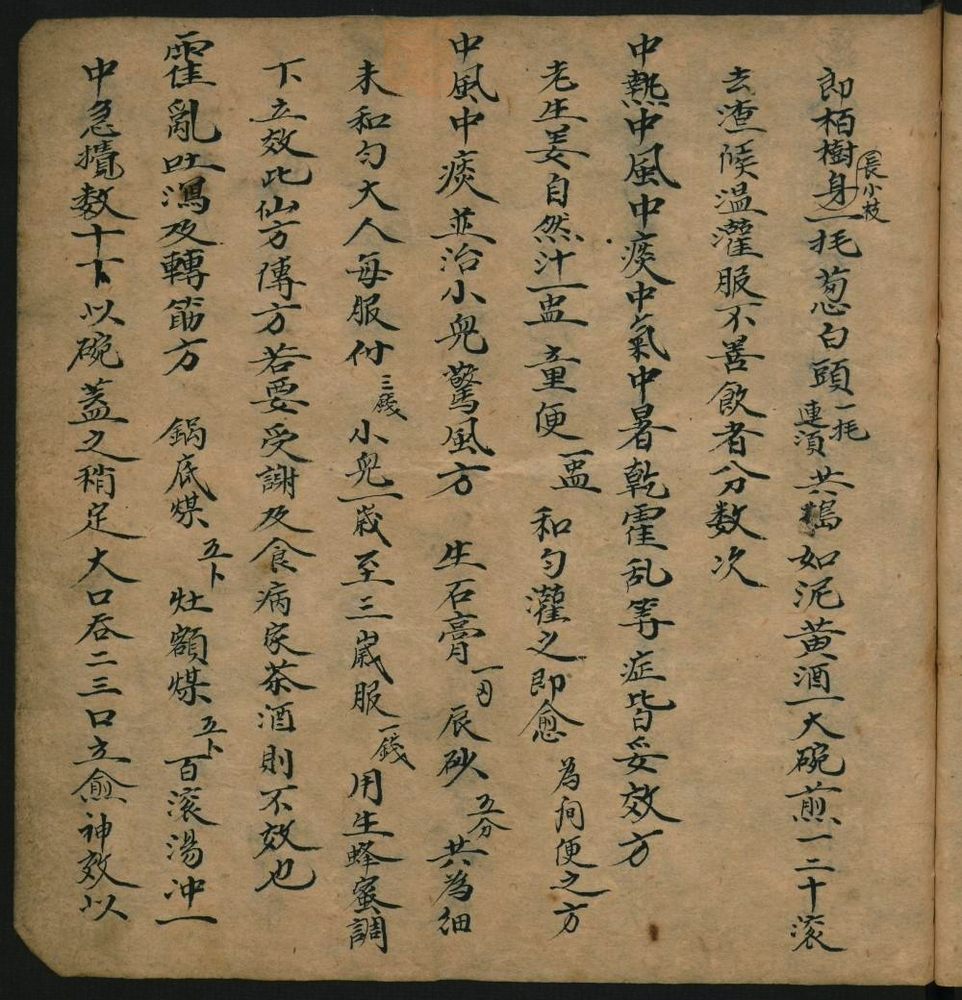 即栢樹身長小枝一抚葱白頭一抚連湏共搗如泥黄酒一大碗煎一二十滚
去渣候温灌服不善飲者分数次
中熱中風中痰中氣中暑乾霍乱等症皆妥效方
老生姜自然汁一盅童便一盅和匀灌之即愈為简便之方
中風中痰並治小兒驚風方 生石膏一両辰砂五分共為细
未和匀大人每服付三錢小兒一歲至三歲服一錢用生蜂蜜調
下立效此仙方傳方若要受謝及食病家茶酒則不效也
霍亂吐瀉及轉筋方 鍋底煤五卜灶額煤五卜百滚湯冲一
中急攪数十下以碗蓋之稍定大口吞二三口立愈神效以